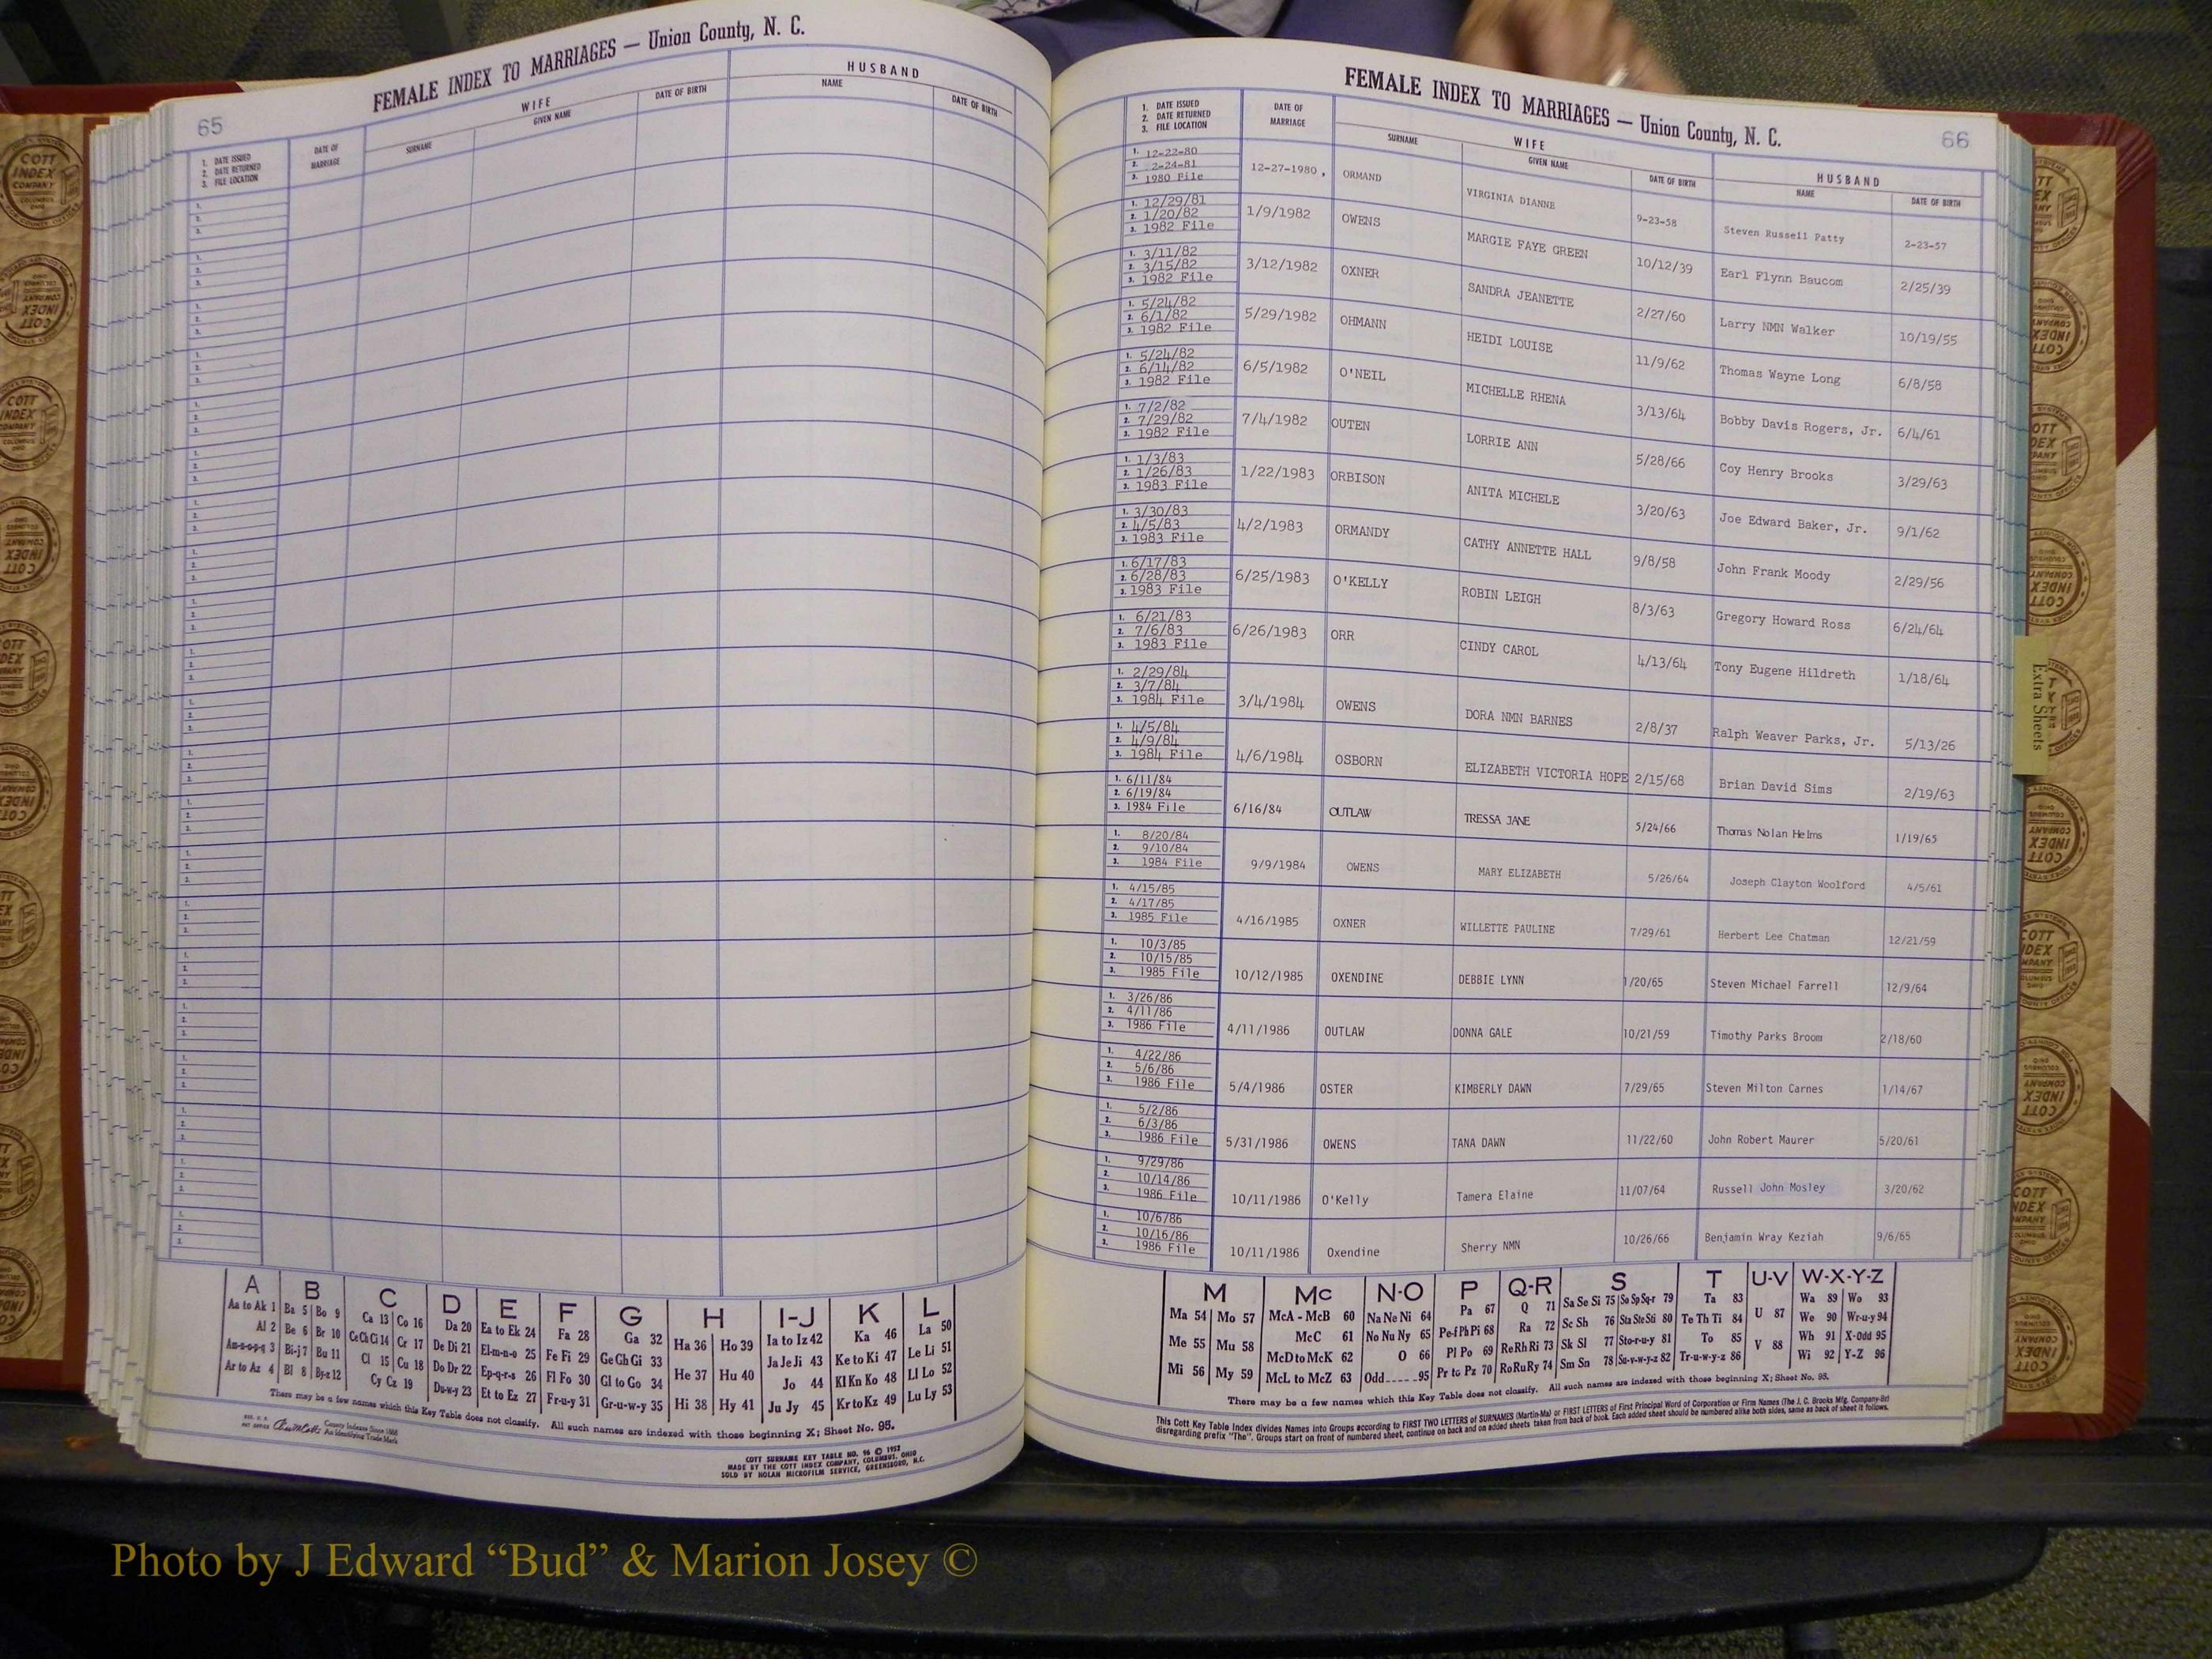 FEMALE INDEX TO MARRIAGES — Union County, N. C.
65
1. DATE ISSUED
2. DATE RETURNED
3. FILE LOCATION
DATE OF MARRIAGE
WIFE
SURNAME
GIVEN NAME
DATE OF BIRTH
HUSBAND
NAME
DATE OF BIRTH
A B C D E F G H I-J K L
Aa to Ak 1 Ba 5 Bo 9 Ca 13 Co 16 Da 20 Ea to Ek 24 Fa 28 Ga 32 Ha 36 Ho 39 Ia to Iz 42 Ka 46 La 50
Al 2 Be 6 Br 10 Ce Ch Ci 14 Cr 17 De Di 21 El-m-n-o 25 Fe Fi 29 Ge Gh Gi 33 He 37 Hu 40 Ja Je Ji 43 Ke to Ki 47 Le Li 51
Am-n-o-p-q 3 Bi-j 7 Bu 11 Cl 15 Cu 18 Do Dr 22 Ep-q-r-s 26 Fl Fo 30 Gl to Go 34 Hi 38 Hy 41 Jo 44 Kl Kn Ko 48 Ll Lo 52
Ar to Az 4 Bl 8 By-z 12 Cy Cz 19 Du-w-y 23 Et to Ez 27 Fr-u-y 31 Gr-u-w-y 35 Ju Jy 45 Kr to Kz 49 Lu Ly 53
There may be a few names which this Key Table does not classify. All such names are indexed with those beginning X; Sheet No. 95.
County Indexes Since 1888
An Identifying Trade Mark
COTT SURNAME KEY TABLE NO. 96 © 1952
MADE BY THE COTT INDEX COMPANY, COLUMBUS, OHIO
SOLD BY NOLAN MICROFILM SERVICE, GREENSBORO, N.C.
FEMALE INDEX TO MARRIAGES — Union County, N. C.
66
1. DATE ISSUED
2. DATE RETURNED
3. FILE LOCATION
DATE OF MARRIAGE
WIFE
SURNAME
GIVEN NAME
DATE OF BIRTH
HUSBAND
NAME
DATE OF BIRTH
1. 12-22-80
2. 2-24-81
3. 1980 File
12-27-1980 ORMAND VIRGINIA DIANNE 9-23-58 Steven Russell Patty 2-23-57
1. 12/29/81
2. 1/20/82
3. 1982 File
1/9/1982 OWENS MARGIE FAYE GREEN 10/12/39 Earl Flynn Baucom 2/25/39
1. 3/11/82
2. 3/15/82
3. 1982 File
3/12/1982 OXNER SANDRA JEANETTE 2/27/60 Larry NMN Walker 10/19/55
1. 5/24/82
2. 6/1/82
3. 1982 File
5/29/1982 OHMANN HEIDI LOUISE 11/9/62 Thomas Wayne Long 6/8/58
1. 5/24/82
2. 6/14/82
3. 1982 File
6/5/1982 O'NEIL MICHELLE RHENA 3/13/64 Bobby Davis Rogers, Jr. 6/4/61
1. 7/2/82
2. 7/29/82
3. 1982 File
7/4/1982 OUTEN LORRIE ANN 5/28/66 Coy Henry Brooks 3/29/63
1. 1/3/83
2. 1/26/83
3. 1983 File
1/22/1983 ORBISON ANITA MICHELE 3/20/63 Joe Edward Baker, Jr. 9/1/62
1. 3/30/83
2. 4/5/83
3. 1983 File
4/2/1983 ORMANDY CATHY ANNETTE HALL 9/8/58 John Frank Moody 2/29/56
1. 6/17/83
2. 6/28/83
3. 1983 File
6/25/1983 O'KELLY ROBIN LEIGH 8/3/63 Gregory Howard Ross 6/24/64
1. 6/21/83
2. 7/6/83
3. 1983 File
6/26/1983 ORR CINDY CAROL 4/13/64 Tony Eugene Hildreth 1/18/64
1. 2/29/84
2. 3/7/84
3. 1984 File
3/4/1984 OWENS DORA NMN BARNES 2/8/37 Ralph Weaver Parks, Jr. 5/13/26
1. 4/5/84
2. 4/9/84
3. 1984 File
4/6/1984 OSBORN ELIZABETH VICTORIA HOPE 2/15/68 Brian David Sims 2/19/63
1. 6/11/84
2. 6/19/84
3. 1984 File
6/16/84 OUTLAW TRESSA JANE 5/24/66 Thomas Nolan Helms 1/19/65
1. 8/20/84
2. 9/10/84
3. 1984 File
9/9/1984 OWENS MARY ELIZABETH 5/26/64 Joseph Clayton Woolford 4/5/61
1. 4/15/85
2. 4/17/85
3. 1985 File
4/16/1985 OXNER WILLETTE PAULINE 7/29/61 Herbert Lee Chatman 12/21/59
1. 10/3/85
2. 10/15/85
3. 1985 File
10/12/1985 OXENDINE DEBBIE LYNN 1/20/65 Steven Michael Farrell 12/9/64
1. 3/26/86
2. 4/11/86
3. 1986 File
4/11/1986 OUTLAW DONNA GALE 10/21/59 Timothy Parks Broom 2/18/60
1. 4/22/86
2. 5/6/86
3. 1986 File
5/4/1986 OSTER KIMBERLY DAWN 7/29/65 Steven Milton Carnes 1/14/67
1. 5/2/86
2. 6/3/86
3. 1986 File
5/31/1986 OWENS TANA DAWN 11/22/60 John Robert Maurer 5/20/61
1. 9/29/86
2. 10/14/86
3. 1986 File
10/11/1986 O'Kelly Tamera Elaine 11/07/64 Russell John Mosley 3/20/62
1. 10/6/86
2. 10/16/86
3. 1986 File
10/11/1986 Oxendine Sherry NMN 10/26/66 Benjamin Wray Keziah 9/6/65
M Mc N-O P Q-R S T U-V W-X-Y-Z
Ma 54 Mo 57 McA - McB 60 Na Ne Ni 64 Pa 67 Q 71 Sa Se Si 75 So Sp Sq-r 79 Ta 83 U 87 Wa 89 Wo 93
Me 55 Mu 58 McC 61 No Nu Ny 65 Pe-f Ph Pi 68 Ra 72 Sc Sh 76 Sta Ste Sti 80 Te Th Ti 84 V 88 We 90 Wr-u-y 94
McD to McK 62 O 66 Pl Po 69 Re Rh Ri 73 Sk Sl 77 Sto-r-u-y 81 To 85 Wh 91 X-Odd 95
Mi 56 My 59 McL to McZ 63 Odd 95 Pr to Pz 70 Ro Ru Ry 74 Sm Sn 78 Su-v-w-y-z 82 Tr-u-w-y-z 86 Wi 92 Y-Z 96
There may be a few names which this Key Table does not classify. All such names are indexed with those beginning X; Sheet No. 95.
This Cott Key Table Index divides Names into Groups according to FIRST TWO LETTERS of SURNAMES (Martin-Ma) or FIRST LETTERS of First Principal Word of Corporation or Firm Names (The J. C. Brooks Mfg. Company-Br)
disregarding prefix "The". Groups start on front of numbered sheet, continue on back and on added sheets taken from back of book. Each added sheet should be numbered alike both sides, same as back of sheet it follows.
Extra Sheets
COTT INDEX COMPANY COLUMBUS OHIO
Photo by J Edward “Bud” & Marion Josey ©